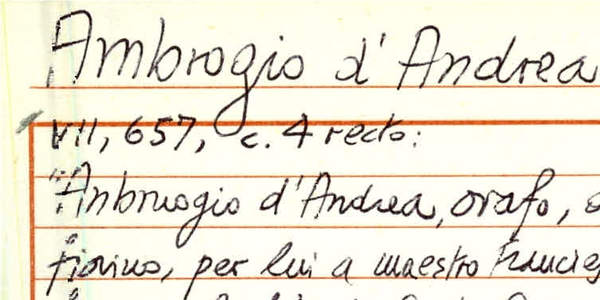 Ambrogio d'Andrea
VII, 657, c. 4 recto:
"Anbruogio d'Andrea, orafo,
fiorino, per lui a maestro